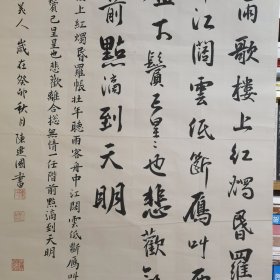 雨歌樓上紅燭昏羅
江闊雲低斷鴈叫
下鬢已星星也悲歡
前點滴到天明
上紅燭昏羅帳壯年聽雨客舟中江闊雲低斷鴈叫
鬢已星星也悲歡離合總無情一任階前點滴到天明
美人 歲在癸卯秋月陳建國書